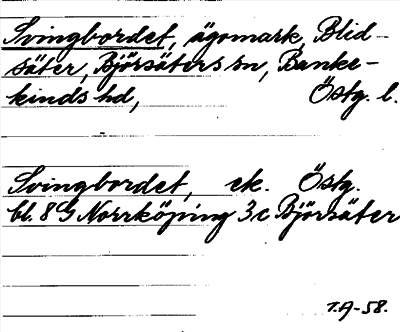 Svingbordet, ägomark, Blid-
säter, Björsäters sn, Banke-
kinds hd, Östg. l.
Svingbordet, ek. Östg.
bl. 8G Norrköping 3c Björsäter
T.A-58.